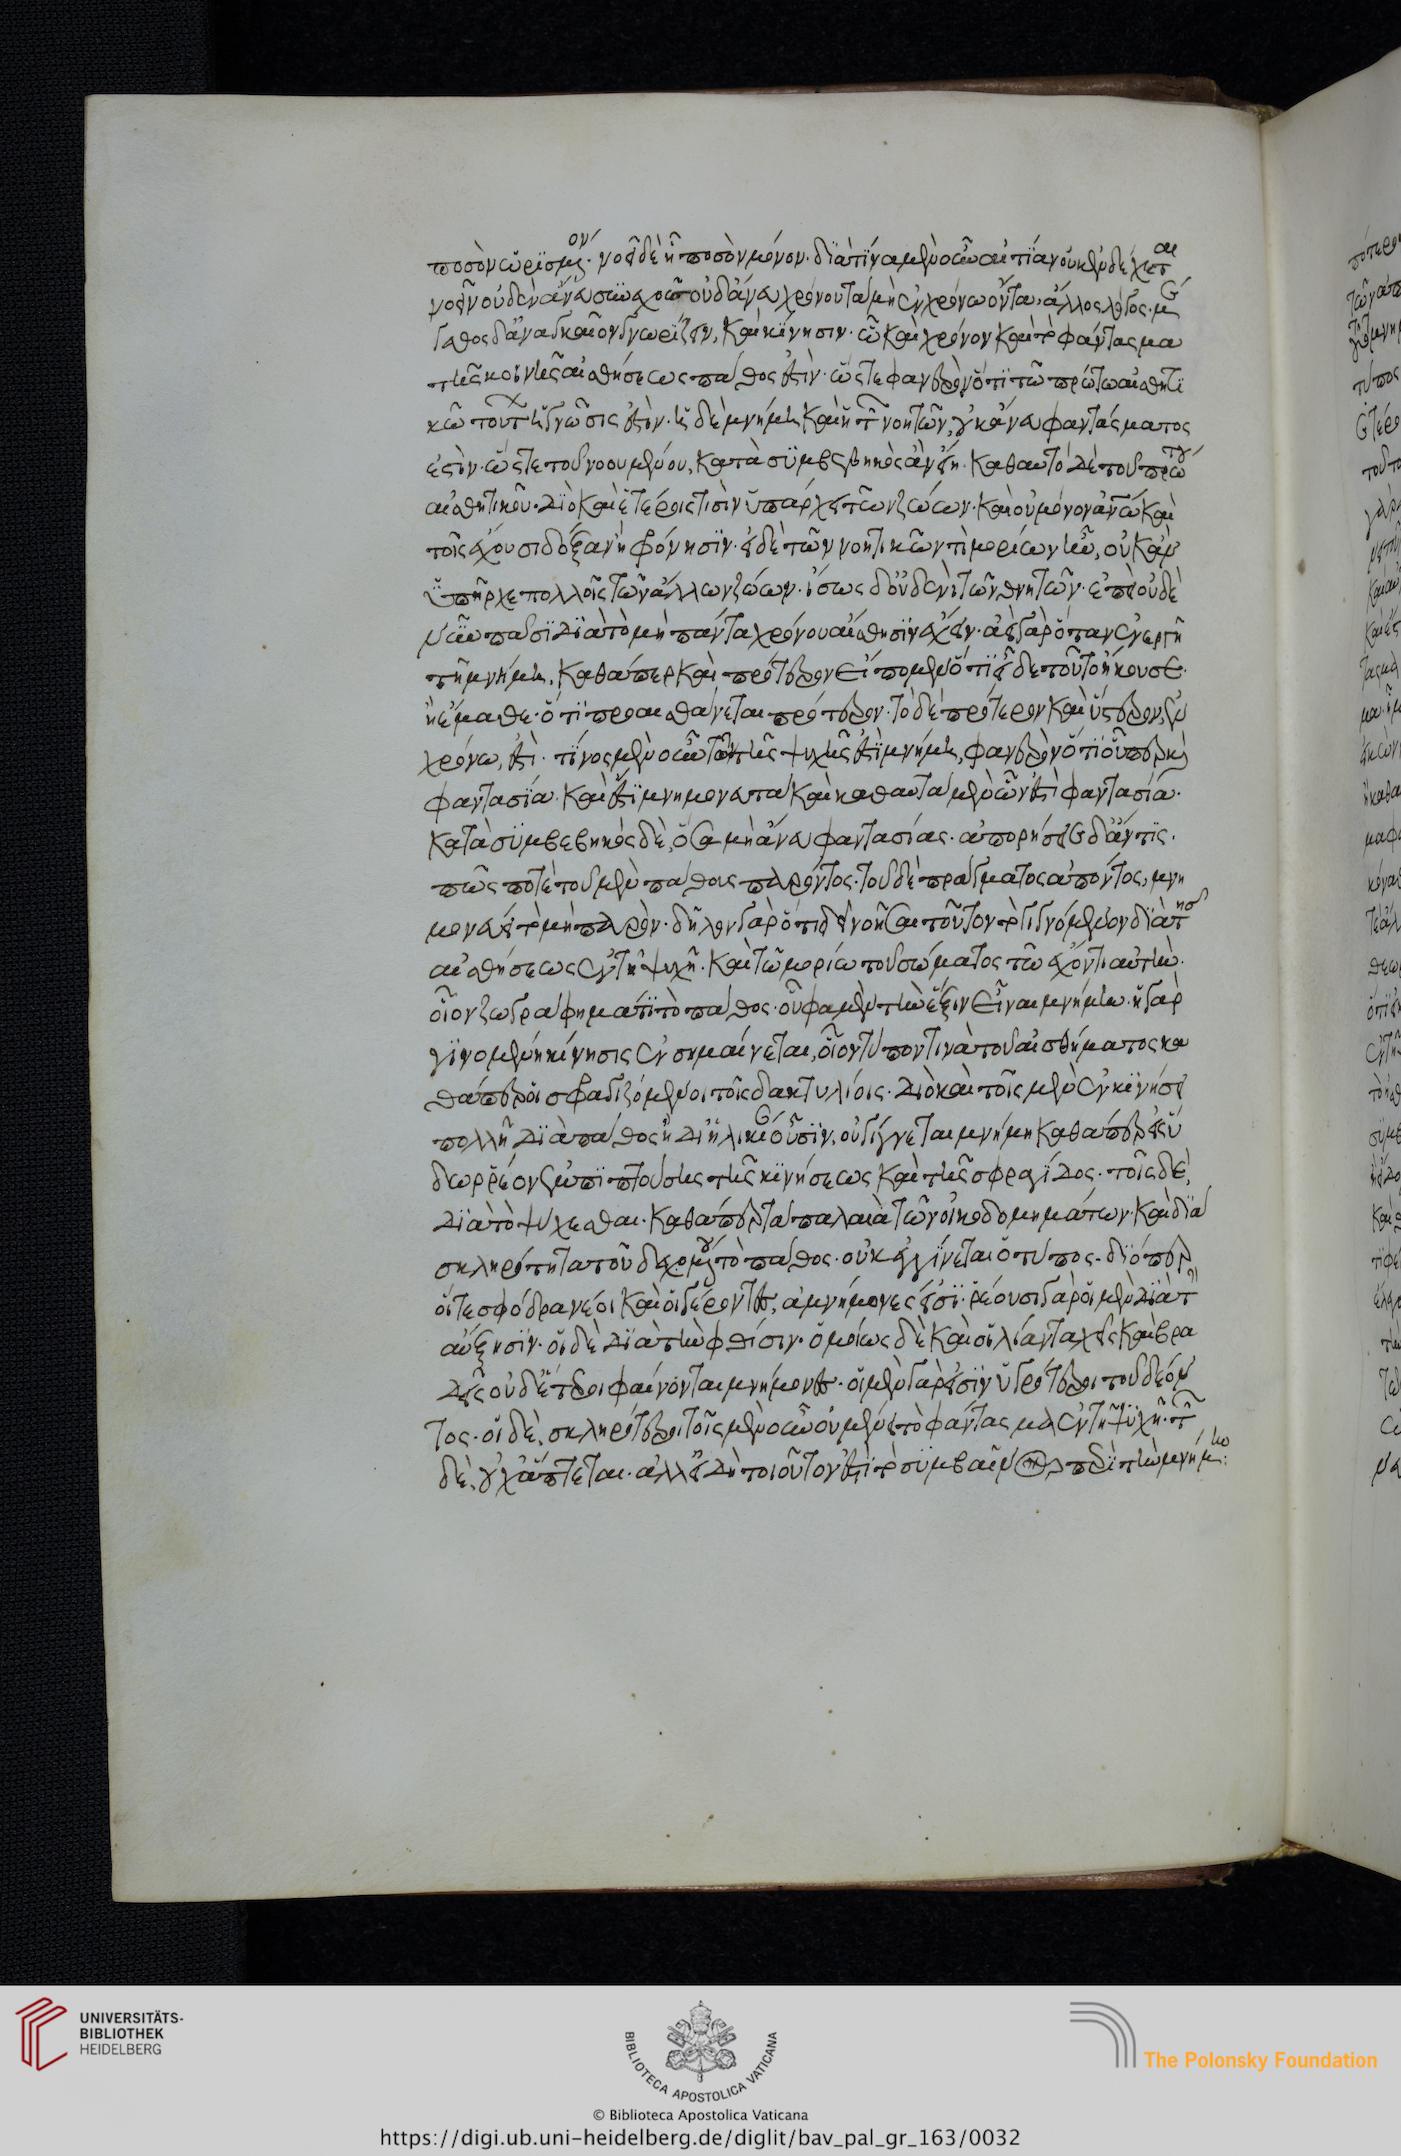 ποσὸν ὡρισμένον· νοεῖ δὲ ᾗ ποσὸν μόνον· διὰ τίνα μὲν οὖν αἰτίαν οὐκ ἐνδέχεται
νοεῖν οὐδὲν ἄνευ συνεχοῦς οὐδ' ἄνευ χρόνου τὰ μὴ ἐν χρόνω ὄντα, ἄλλος λόγος· μέ
γεθος δ' ἀναγκαῖον γνωρίζειν, καὶ κίνησιν· ὧ καὶ χρόνον καὶ τὸ φάντασμα
τῆς κοινῆς αἰσθήσεως πάθος ἐστὶν· ὥστε φανερὸν ὅτι τῶ πρώτω αἰσθητι
κῶ τούτων ἡ γνῶσις ἐστὶν· ἡ δὲ μνήμη καὶ ἡ τῶν νοητῶν, οὐκ ἄνευ φαντάσματος
ἐστὶν· ὥστε τοῦ νοουμένου, κατὰ συμβεβηκὸς ἂν εἴη· καθαυτὸ δὲ τοῦ πρώτου
αἰσθητικοῦ· διὸ καὶ ἑτέροις τισὶν ὑπάρχει τῶν ζώων· καὶ οὐ μόνον ἀνθρώποις καὶ
τοῖς ἔχουσι δόξαν ἢ φρόνησιν· εἰ δὲ τῶν νοητικῶν τι μορίων ἦν, οὐκ ἂν
ὑπῆρχε πολλοῖς τῶν ἄλλων ζώων· ἴσως δ' οὐδενὶ τῶν θνητῶν· ἐπεὶ οὐδὲ
νῦν πᾶσι διὰ τὸ μὴ πάντα χρόνου αἴσθησιν ἔχειν· ἀεὶ γὰρ ὅταν ἐνεργῆ
τῆ μνήμη, καθάπερ καὶ πρότερον εἴπομεν ὅτι εἶδε τοῦτο ἢ ἤκουσε
ἢ ἔμαθε· ὅτι προαισθάνεται πρότερον· τὸ δὲ πρότερον καὶ ὕστερον, ἐν
χρόνω, ἐστὶ· τίνος μὲν οὖν τῶν τῆς ψυχῆς ἐστὶ μνήμη, φανερὸν ὅτι οὗπερ καὶ
φαντασία· καὶ ἔστι μνημονευτὰ καὶ καθαυτὰ μὲν ὧν ἐστὶ φαντασία·
κατὰ συμβεβηκὸς δὲ, ὅσα μὴ ἄνευ φαντασίας· ἀπορήσειε δ' ἄν τις·
πῶς ποτὲ τοῦ μὲν πάθους παρόντος· τοῦ δὲ πράγματος ἀπόντος, μνη
μονεύει τὸ μὴ παρὸν· δῆλον γὰρ ὅτι δεῖ νοῆσαι τοῦτον τὸ γιγνόμενον διὰ τῆς
αἰσθήσεως ἐν τῆ ψυχῆ· καὶ τῶ μορίω τοῦ σώματος τῶ ἔχοντι αὐτὴν·
οἷον ζωγράφημά τι τὸ πάθος· οὗ φαμὲν τὴν ἕξιν εἶναι μνήμην· ἡ γὰρ
γινομένη κίνησις ἐνσημαίνεται, οἷον τύπον τινὰ τοῦ αἰσθήματος κα
θάπερ οἱ σφραγιζόμενοι τοῖς δακτυλίοις· διὸ καὶ τοῖς μὲν ἐν κινήσει
πολλῆ διὰ πάθος ἢ δι' ἡλικίαν οὖσιν, οὐ γίγνεται μνήμη καθάπερ εἰς ὕ
δωρ ῥέον ἐμπιπτούσης τῆς κινήσεως καὶ τῆς σφραγίδος· τοῖς δὲ,
διὰ τὸ ψύχεσθαι· καθάπερ τὰ παλαιὰ τῶν οἰκοδομημάτων· καὶ διὰ
σκληρότητα τοῦ δεχομένου τὸ πάθος· οὐκ ἐγγίνεται ὁ τύπος· διόπερ
οἵ τε σφόδρα νέοι καὶ οἱ γέροντες, ἀμνήμονες εἰσὶ· ῥέουσι γὰρ οἱ μὲν διὰ τὴν
αὔξησιν· οἱ δὲ διὰ τὴν φθίσιν· ὁμοίως δὲ καὶ οἱ λίαν ταχεῖς καὶ βρα
δεῖς οὐδέτεροι φαίνονται μνήμονες· οἱ μὲν γὰρ εἰσὶν ὑγρότεροι τοῦ δέον
τος· οἱ δὲ, σκληρότεροι τοῖς μὲν οὖν οὐ μένει τὸ φάντασμα ἐν τῆ ψυχῆ· τῶν
δὲ, οὐχ ἅπτεται· ἀλλ' εἰ δὴ τοιοῦτον ἐστὶ τὸ συμβαῖνον περὶ τὴν μνήμην:
UNIVERSITÄTS-
BIBLIOTHEK
HEIDELBERG
BIBLIOTECA APOSTOLICA VATICANA
The Polonsky Foundation
© Biblioteca Apostolica Vaticana
https://digi.ub.uni-heidelberg.de/diglit/bav_pal_gr_163/0032